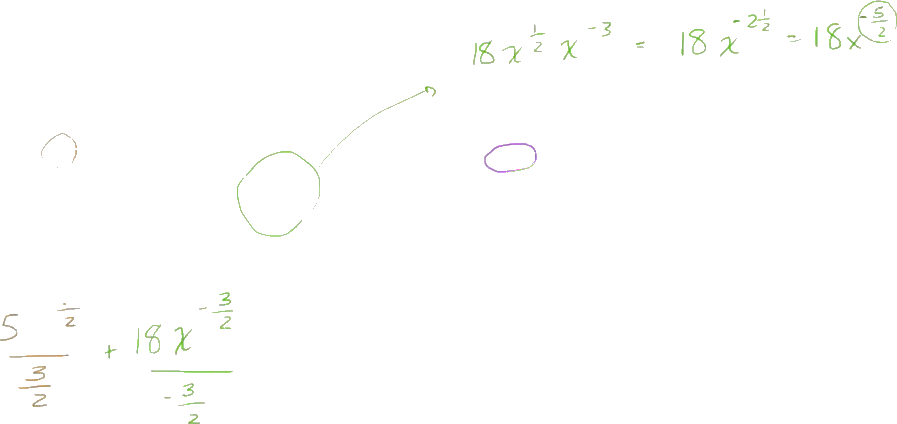 18x^{\frac{1}{2}} x^{-3} = 18x^{-2\frac{1}{2}} = 18x^{-\frac{5}{2}}
\frac{5^{\frac{}{2}}}{\frac{3}{2}} + \frac{18x^{-\frac{3}{2}}}{-\frac{3}{2}}